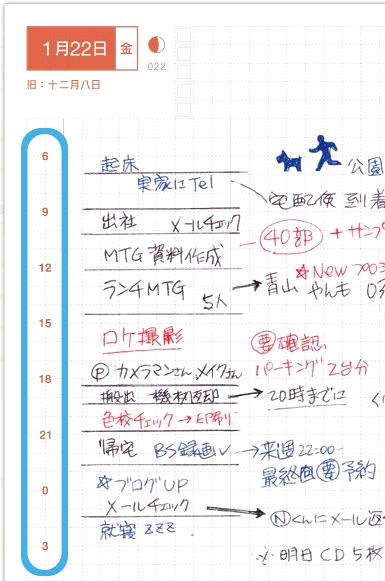 1月22日 金
022
旧：十二月八日
6
起床
公園
実家にTel
宅配便 到着
9
出社 メールチェック
40部 + サンプ
MTG 資料作成
12
☆New プロジ
ランチMTG 5人
青山 やんも
15
ロケ撮影
要確認
パーキング 2台分
Ⓟカメラマンさん、メイクさん
18
搬出 機材返却
20時までに
色校チェック→EP帰り
21
帰宅 BS録画✓
来週22:00-
最終回 要予約
0
☆ブログUP
メールチェック
Ⓝくんにメール返
就寝 zzz
3
※明日CD5枚